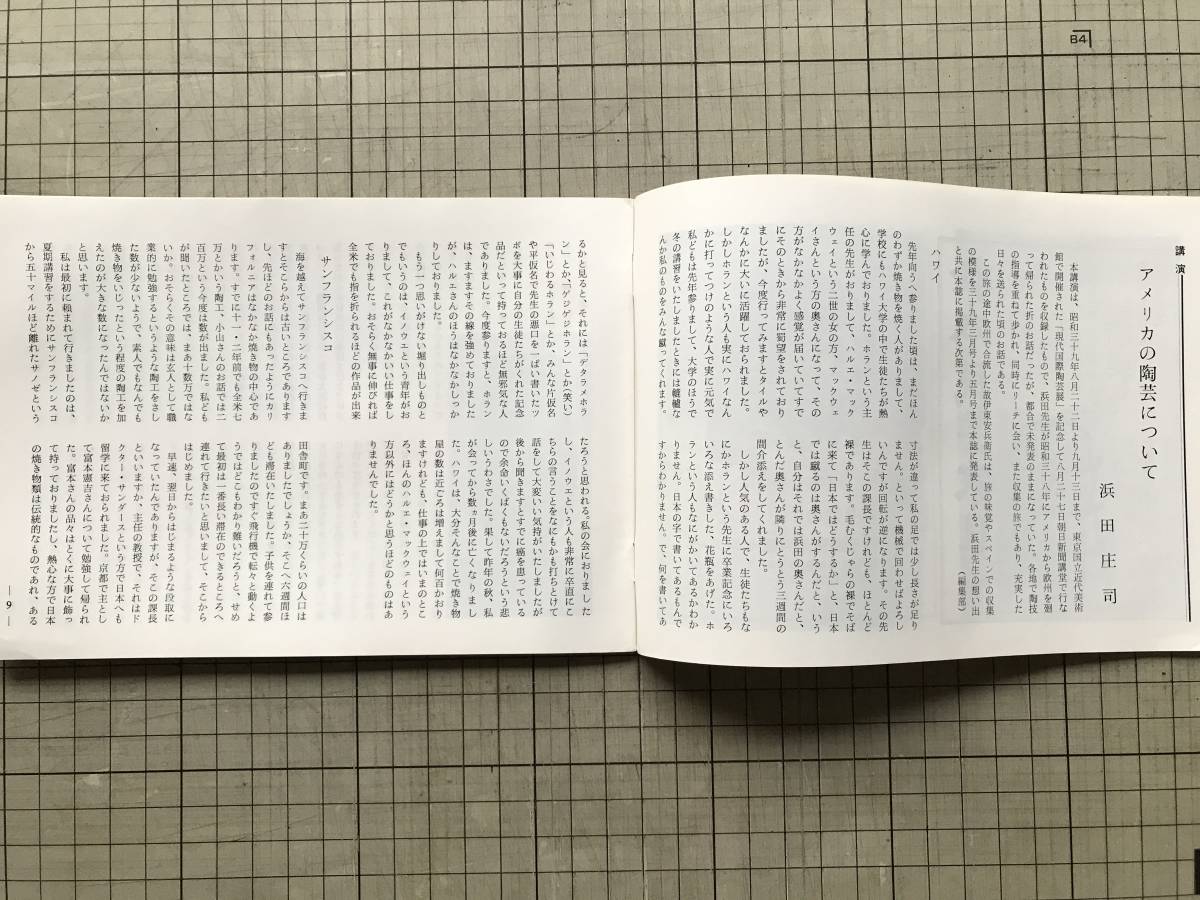 B4
講演
アメリカの陶芸について
浜田庄司
本講演は、昭和三十九年八月二十二日より九月十三日まで、東京国立近代美術
館で開催された「現代国際陶芸展」を記念して八月二十七日朝日新聞講堂で行な
われたものを収録したもので、浜田先生が昭和三十八年にアメリカから欧州を廻
って帰られた折のお話だったが、都合で未発表のままになっていた。各地で陶技
の指導を重ねて歩かれ、同時にリーチに会い、また収集の旅でもあり、充実した
日々を送られた頃のお話である。
この旅の途中欧州で合流した故伊東安兵衛氏は、旅の味覚やスペインでの収集
の模様を三十九年三月号より五月号まで本誌に発表している。浜田先生の想い出
と共に本誌に掲載する次第である。
（編集部）
ハワイ
先年向うへ参りました頃は、まだほん
のわずか焼き物を焼く人がありまして、
学校にもハワイ大学の中で生徒たちが熱
心に学んでおりました。ホランという主
任の先生がおりまして、ハルエ・マック
ウェイという二世の女の方、マックウェ
イさんという方の奥さんになって、その
方がなかなかよく感覚が届いていてすで
にそのときから非常に嘱望をされており
ましたが、今度行ってみますとタイルや
なんかに大いに活躍しておられました。
しかしホランという人も実にハワイなん
かに打ってつけのような人で実に元気で
私どもは先年参りまして、大学のほうで
冬の講習をいたしましたときには轆轤な
んか私のものをみんな蹴ってくれます。
寸法が違って私の足では少し長さが足り
ません。といって機械で回わせばよろし
いんですが回転が逆になります。その先
生はそこの課長ですけれども、ほとんど
裸であります。毛むくじゃらの裸でそば
に来て「日本ではどうするか」と、日本
では蹴るのは奥さんがするんだと、いう
と、自分はそれでは浜田の奥さんだと、
とんだ奥さんが隣りにとうとう三週間の
間介添えをしてくれました。
しかし人気のある人で、生徒たちもな
にかホランという先生に卒業記念にいろ
いろな添え書きした、花瓶をあげた。ホ
ランという人もなにがかいてあるかわか
りません。日本の字で書いてあるもんで
すからわかりません。で、何を書いてあ
るかと見ると、それには「デタラメホラ
ン」とか、「ゲジゲジホラン」とか（笑い）
「いじわるホラン」とか、みんな片仮名
や平仮名で先生の悪口を一ぱい書いたツ
ボを大事に自分の生徒たちがくれた記念
品だといって持っておるほど無邪気な人
でありました。今度参りますと、ホラン
は、ますますその線を強めておりました
が、ハルエさんのほうはなかなかしっか
りしておりました。
もう一つ思いがけない堀り出しものと
でもいうのは、イノウエという青年がお
りまして、これがなかなかいい仕事をし
ておりました。おそらく無事に伸びれば
全米でも指を折られるほどの作品が出来
たろうと思われる。私の会におりました
し、イノウエという人も非常に卒直にこ
ちらの言うことをなにもかも打ちとけて
話をして大変いい気持がいたしましたが
後から聞きますとすでに癌を患っている
ので余命いくばくもないだろうという悲
しいうわさでした。果して昨年の秋、私
が会ってから数ヵ月後に亡くなりまし
た。ハワイは、大分そんなことで焼き物
屋の数は近ごろは増えまして何百かおり
ますけれども、仕事の上ではいまのとこ
ろ、ほんのハルエ・マックウェイという
方以外にはどうかと思うほどのものはあ
りませんでした。
サンフランシスコ
海を越えてサンフランシスコへ行きま
すとそこらからは古いところであります
し、先ほどのお話にもあったようにカリ
フォルニアはなかなか焼き物の中心であ
ります。すでに十一・二年前でも全米七
万とかいう陶工、小山さんのお話では二
百万という今度は数が出ました。私ども
が聞いたところでは、まあ十数万ではな
いか。おそらくその意味は玄人として職
業的に勉強するというような陶工をさし
た数が少なないようで、素人でもなんでも
焼き物をいじったという程度の陶工を加
えたのが大きな数になったんではないか
と思います。
私は最初に頼まれて行きましたのは、
夏期講習をするためにサンフランシスコ
から五十マイルほど離れたサノゼという
田舎町です。まあ二十万くらいの人口は
ありましたでしょうか、そこへ六週間ほ
ども滞在いたしました。子供を連れて参
りましたのですぐ飛行機で転々と動くよ
り最初はどこもわかり難いだろうと、せめ
て最初は一番長い滞在のできるところへ
連れて行きたいと思いまして、そこから
はじめました。
早速、翌日からはじまるような段取に
なっていたんでありますが、そこの課長
といいますか、主任の教授で、それはド
クター・サンダースという方で日本へも
留学に来ておられました。京都で主とし
て富本憲吉さんについて勉強して帰られ
た。富本さんの品々はとくに大事に飾っ
て持っておりましたし、熱心な方で日本
の焼き物類は伝統的なものであれ、ある
— 9 —